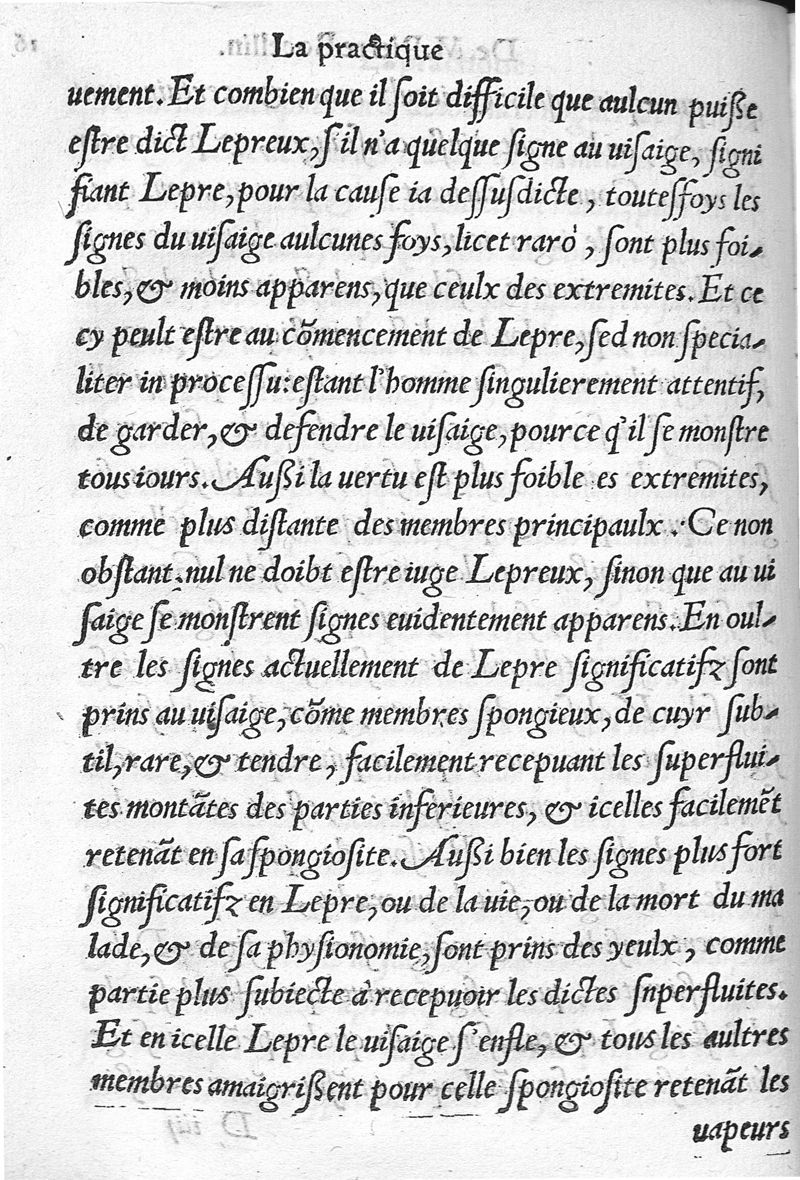 La practique
uement. Et combien que il ſoit difficile que aulcun puiße
eſtre dict Lepreux, ſ'il n'a quelque ſigne au uiſaige, ſigni
fiant Lepre, pour la cauſe ia deſſuſdicte, touteſfoys les
ſignes du uiſaige aulcunes foys, licet rarò, ſont plus foi-
bles, & moins apparens, que ceulx des extremites. Et ce
cy peult eſtre au cõmencement de Lepre, ſed non ſpecia-
liter in proceſſu: eſtant l'homme ſingulierement attentif,
de garder, & defendre le uiſaige, pource q'il ſe monſtre
tous iours. Außi la uertu eſt plus foible es extremites,
comme plus diſtante des membres principaulx. Ce non
obſtant, nul ne doibt eſtre iuge Lepreux, ſinon que au ui
ſaige ſe monſtrent ſignes euidentement apparens. En oul-
tre les ſignes actuellement de Lepre ſignificatifz ſont
prins au uiſaige, cõme membres ſpongieux, de cuyr ſub-
til, rare, & tendre, facilement recepuant les ſuperflui-
tes montãtes des parties inferieures, & icelles facilemẽt
retenãt en ſa ſpongioſite. Außi bien les ſignes plus fort
ſignificatifz en Lepre, ou de la uie, ou de la mort du ma
lade, & de ſa phyſionomie, ſont prins des yeulx, comme
partie plus ſubiecte à recepuoir les dictes ſnperfluites.
Et en icelle Lepre le uiſaige ſ'enfle, & tous les aultres
membres amaigrißent pour celle ſpongioſite retenãt les
uapeurs